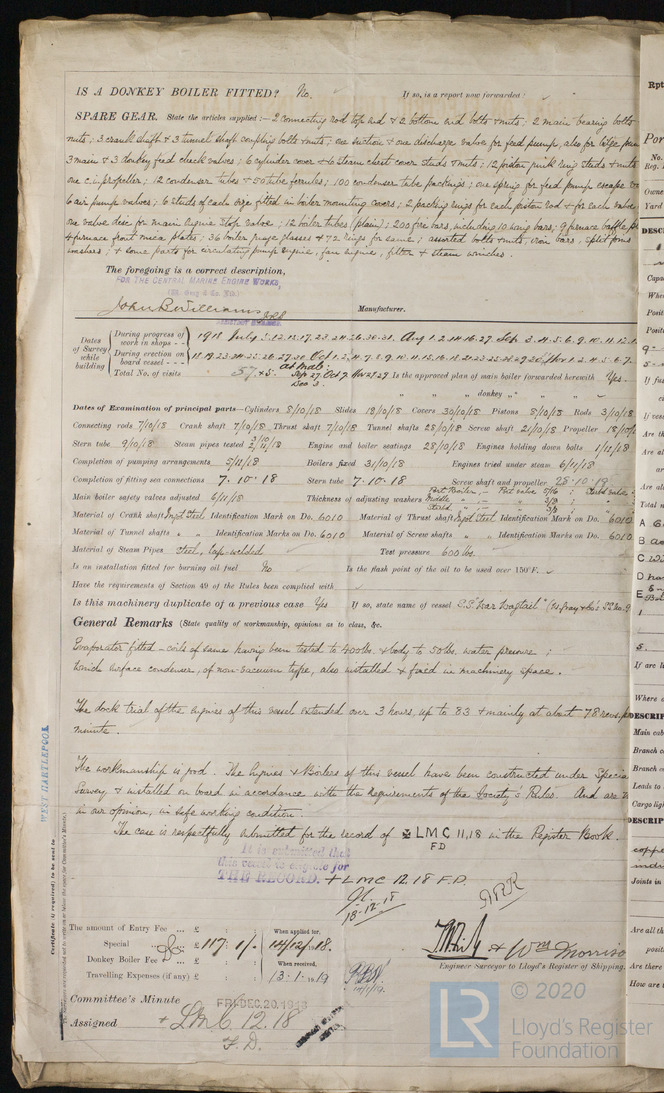 IS A DONKEY BOILER FITTED? No. If so, is a report now forwarded?
SPARE GEAR. State the articles supplied:— 2 connecting rod top end & 2 bottom end bolts & nuts; 2 main bearing bolts
nuts; 3 crank shaft & 3 tunnel shaft coupling bolts & nuts; one suction & one discharge valve for feed pump, also for bilge
3 main & 3 donkey feed check valves; 6 cylinder cover & 6 steam chest cover studs & nuts; 12 piston junk ring studs & nuts
one c.i. propeller; 12 condenser tubes & 50 tube ferrules; 100 condenser tube packings; one spring for feed pump escape
6 air pump valves; 6 studs of each size fitted in boiler mounting covers; 2 packing rings for each piston rod & for each valve
one valve disc for main engine stop valve; 12 boiler tubes (plain); 200 fire bars, including 10 wing bars; 9 furnace baffle
4 furnace front mica plates; 36 boiler gauge glasses & 72 rings for same; assorted bolts & nuts, iron bars, split pins
washers; & some parts for circulating pump engine, fan engine, filter & steam winches.
The foregoing is a correct description,
FOR THE CENTRAL MARINE ENGINE WORKS,
John B. Williams Manufacturer.
Dates of Survey while building
During progress of work in shops - - 1918 July 3.12.17.23.24.26.30.31. Aug 1.2.14.16.27. Sep. 3.4.5.6.9.10.11.12.
During erection on board vessel - - - 18.19.23.24.25.26.27.30 Oct 1.2.4.7.8.9.10.11.15.16.18.21.23.25.28.29.30. Nov 1.2.4.5.6.7.
Total No. of visits 57 + 5. Sep. 27. Oct 7. Nov 27.29 Dec 3. Is the approved plan of main boiler forwarded herewith Yes.
" " " donkey " " "
Dates of Examination of principal parts—Cylinders 8/10/18 Slides 18/10/18 Covers 30/10/18 Pistons 8/10/18 Rods 3/10/18
Connecting rods 7/10/18 Crank shaft 7/10/18 Thrust shaft 7/10/18 Tunnel shafts 28/10/18 Screw shaft 21/10/18 Propeller 18/10/18
Stern tube 9/10/18 Steam pipes tested Engine and boiler seatings 28/10/18 Engines holding down bolts 1/11/18
Completion of pumping arrangements 5/11/18 Boilers fixed 31/10/18 Engines tried under steam 6/11/18
Completion of fitting sea connections 7.10.18 Stern tube 7.10.18 Screw shaft and propeller 28.10.18
Main boiler safety valves adjusted 6/11/18 Thickness of adjusting washers
Material of Crank shaft Ingot Steel Identification Mark on Do. 6010 Material of Thrust shaft Ingot Steel Identification Mark on Do. 6010
Material of Tunnel shafts " " Identification Marks on Do. 6010 Material of Screw shafts " " Identification Marks on Do. 6010
Material of Steam Pipes Steel, lap-welded Test pressure 600 lbs.
Is an installation fitted for burning oil fuel No Is the flash point of the oil to be used over 150°F.
Have the requirements of Section 49 of the Rules been complied with
Is this machinery duplicate of a previous case Yes If so, state name of vessel S.S. "War Wagtail"
General Remarks (State quality of workmanship, opinions as to class, &c.
Evaporator fitted - coils of same having been tested to 400 lbs. & body to 50 lbs. water pressure;
winch surface condenser, of non-vacuum type, also installed & fixed in machinery space.
The dock trial of the engines of this vessel extended over 3 hours, up to 83 & mainly at about 78 revs.
minute.
The workmanship is good. The Engines & Boilers of this vessel have been constructed under Special
Survey & installed on board in accordance with the requirements of the Society's Rules. And are
in our opinion, in safe working condition.
The case is respectfully submitted for the record of ✠ LMC 11,18 in the Register Book.
FD
It is submitted that
this vessel is eligible for
THE RECORD. + LMC 12.18 F.D.
18.12.18
The amount of Entry Fee ... £ : : When applied for,
Special ... £ 117 : 1/- 14/12/1918.
Donkey Boiler Fee ... £ : : When received,
Travelling Expenses (if any) £ : : 13.1.1919
& Wm Morrison
Engineer Surveyor to Lloyd's Register of Shipping.
Committee's Minute FRI. DEC. 20. 1918
Assigned + LMC 12.18
F.D.
WEST HARTLEPOOL
Certificate (if required) to be sent to
© 2020
LR
Lloyd's Register
Foundation